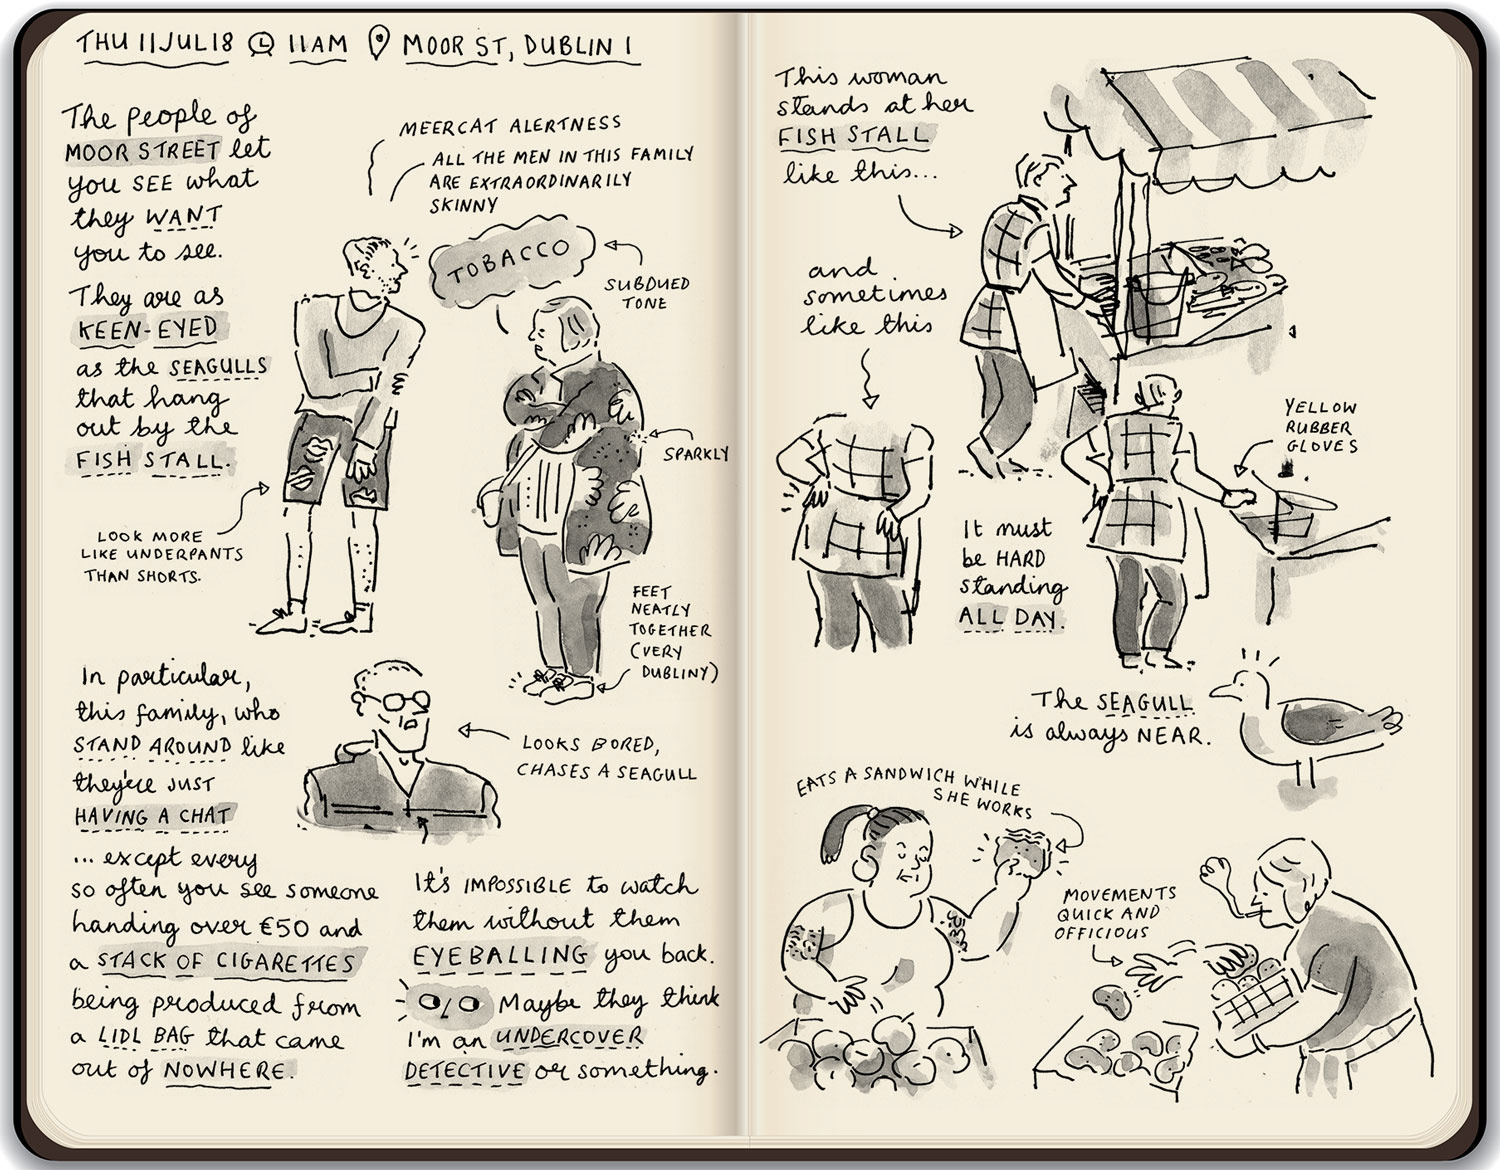 THU 11JUL18 11AM MOOR ST, DUBLIN 1
The people of
MOOR STREET let
you SEE what
they WANT
you to see.
They are as
KEEN-EYED
as the SEAGULLS
that hang
out by the
FISH STALL.
MEERCAT ALERTNESS
ALL THE MEN IN THIS FAMILY
ARE EXTRAORDINARILY
SKINNY
TOBACCO
SUBDUED
TONE
SPARKLY
LOOK MORE
LIKE UNDERPANTS
THAN SHORTS.
FEET
NEATLY
TOGETHER
(VERY
DUBLINY)
In particular,
this family, who
STAND AROUND like
they're JUST
HAVING A CHAT
... except every
so often you see someone
handing over €50 and
a STACK OF CIGARETTES
being produced from
a LIDL BAG that came
out of NOWHERE.
LOOKS BORED,
CHASES A SEAGULL
It's IMPOSSIBLE to watch
them without them
EYEBALLING you back.
Maybe they think
I'm an UNDERCOVER
DETECTIVE or something.
This woman
stands at her
FISH STALL
like this...
and
sometimes
like this
YELLOW
RUBBER
GLOVES
It must
be HARD
standing
ALL DAY.
The SEAGULL
is always NEAR.
EATS A SANDWICH WHILE
SHE WORKS
MOVEMENTS
QUICK AND
OFFICIOUS